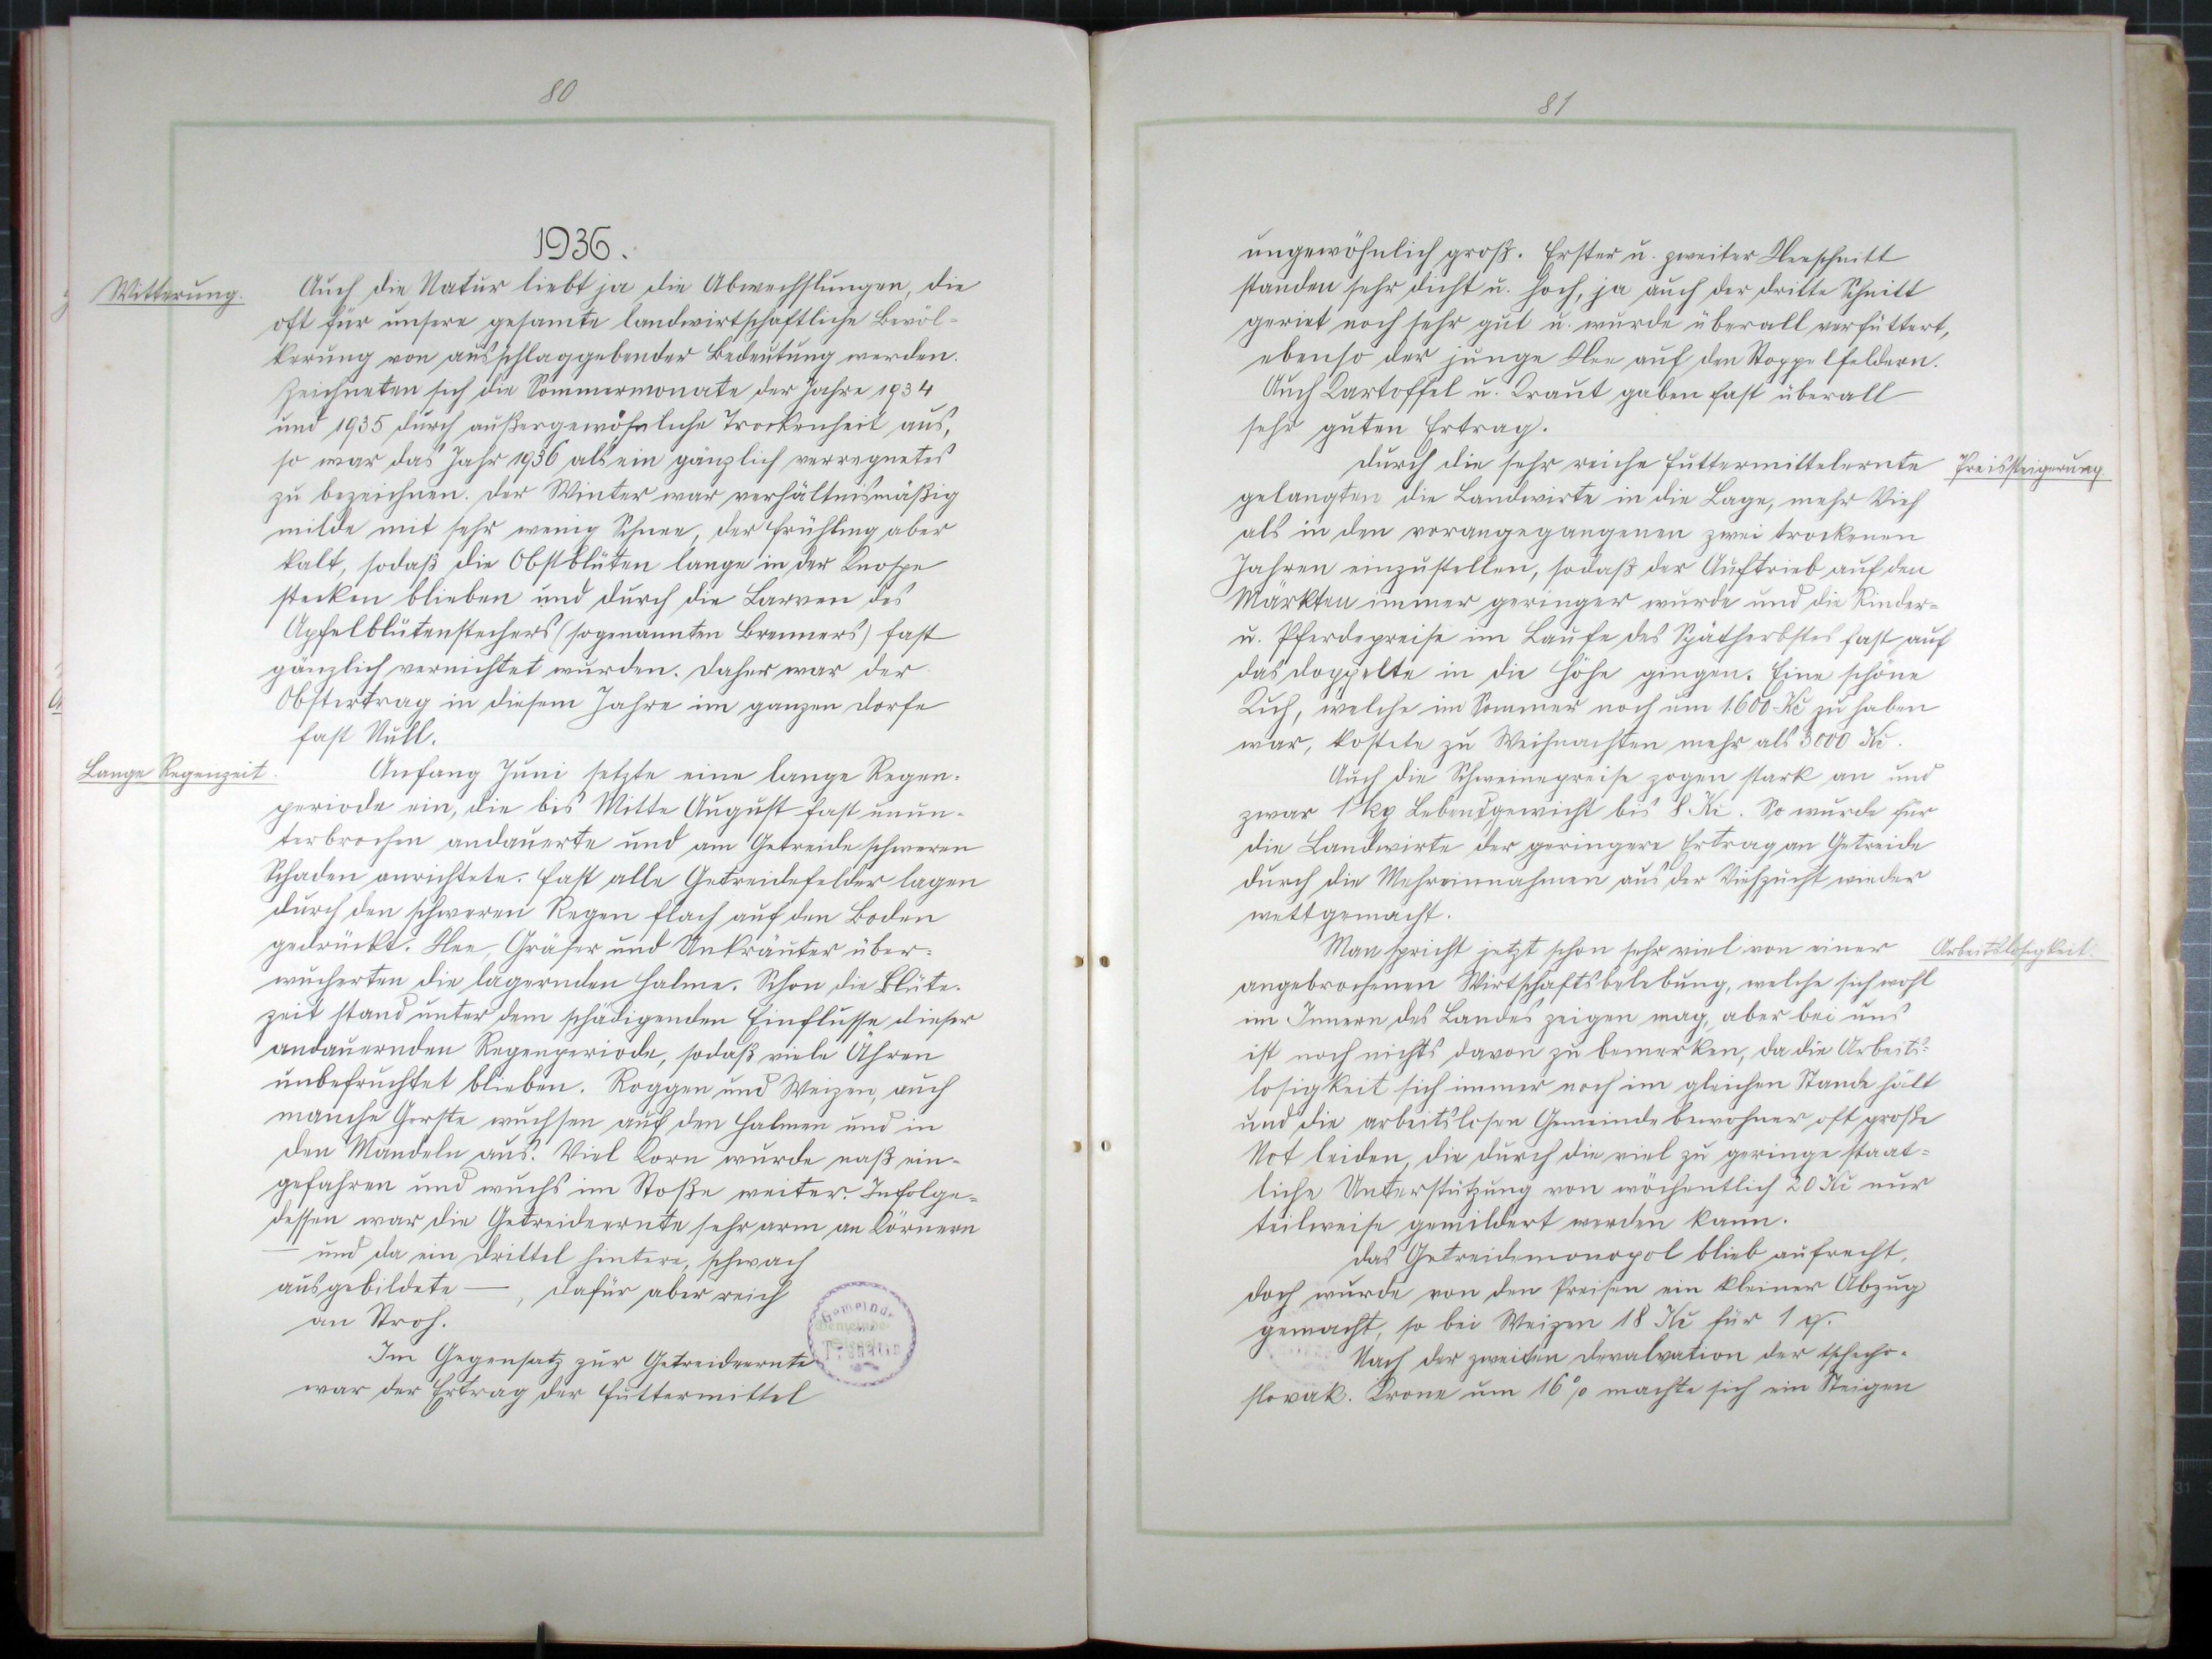 80
1936.
Witterung.
Auch die Natur liebt ja die Abwechslungen, die
oft für unsere gesamte landwirtschaftliche Bevöl-
kerung von ausschlaggebender Bedeutung werden.
Zeichneten sich die Sommermonate der Jahre 1934
und 1935 durch außergewöhnliche Trockenheit aus,
so war das Jahr 1936 als ein gänzlich verregnetes
zu bezeichnen. Der Winter war verhältnismäßig
milde mit sehr wenig Schnee, der Frühling aber
kalt, sodaß die Obstblüten lange in der Knospe
stecken blieben und durch die Larven des
Apfelblütenstechers (sogenannten Brenners) fast
gänzlich vernichtet wurden. Daher war der
Obstertrag in diesem Jahre im ganzen Dorfe
fast Null.
Lange Regenzeit.
Anfang Juni setzte eine lange Regen-
periode ein, die bis Mitte August fast unun-
terbrochen andauerte und am Getreide schweren
Schaden anrichtete. Fast alle Getreidefelder lagen
durch den schweren Regen flach auf den Boden
gedrückt. Klee, Gräser und Unkräuter über-
wucherten die lagernden Halme. Schon die Blüte-
zeit stand unter dem schädigenden Einflusse dieser
andauernden Regenperiode, sodaß viele Ähren
unbefruchtet blieben. Roggen und Weizen, auch
manche Gerste wuchsen auf den Halmen und in
den Mandeln aus. Viel Korn wurde naß ein-
gefahren und wuchs im Stoße weiter. Infolge-
dessen war die Getreideernte sehr arm an Körnern
— und da ein Drittel hintere, schwach
ausgebildete —, dafür aber reich
an Stroh.
Im Gegensatz zur Getreideernte
war der Ertrag der Futtermittel
Gemeinde
81
ungewöhnlich groß. Erster u. zweiter Kleeschnitt
standen sehr dicht u. hoch, ja auch der dritte Schnitt
geriet noch sehr gut u. wurde überall verfüttert,
ebenso der junge Klee auf den Stoppelfeldern.
Auch Kartoffel u. Kraut gaben fast überall
sehr guten Ertrag.
Durch die sehr reiche Futtermittelernte
Preissteigerung
gelangten die Landwirte in die Lage, mehr Vieh
als in den vorangegangenen zwei trockenen
Jahren einzustellen, sodaß der Auftrieb auf den
Märkten immer geringer wurde und die Rinder-
u. Pferdepreise im Laufe des Spätherbstes fast auf
das doppelte in die Höhe gingen. Eine schöne
Kuh, welche im Sommer noch um 1.600 Kč zu haben
war, kostete zu Weihnachten mehr als 3000 Kč.
Auch die Schweinepreise zogen stark an und
zwar 1 kg Lebendgewicht bis 8 Kč. So wurde für
die Landwirte der geringere Ertrag an Getreide
durch die Mehreinnahmen aus der Viehzucht wieder
wettgemacht.
Man spricht jetzt schon sehr viel von einer
Arbeitslosigkeit.
angebrochenen Wirtschaftsbelebung, welche sich wohl
im Innern des Landes zeigen mag, aber bei uns
ist noch nichts davon zu bemerken, da die Arbeits-
losigkeit sich immer noch im gleichen Stande hält
und die arbeitslosen Gemeindebewohner oft große
Not leiden, die durch die viel zu geringe staat-
liche Unterstützung von wöchentlich 20 Kč nur
teilweise gemildert werden kann.
Das Getreidemonopol blieb aufrecht,
doch wurde von den Preisen ein kleiner Abzug
gemacht, so bei Weizen 18 Kč für 1 q.
Nach der zweiten Devalvation der tschecho-
slovak. Krone um 16% machte sich ein Steigen